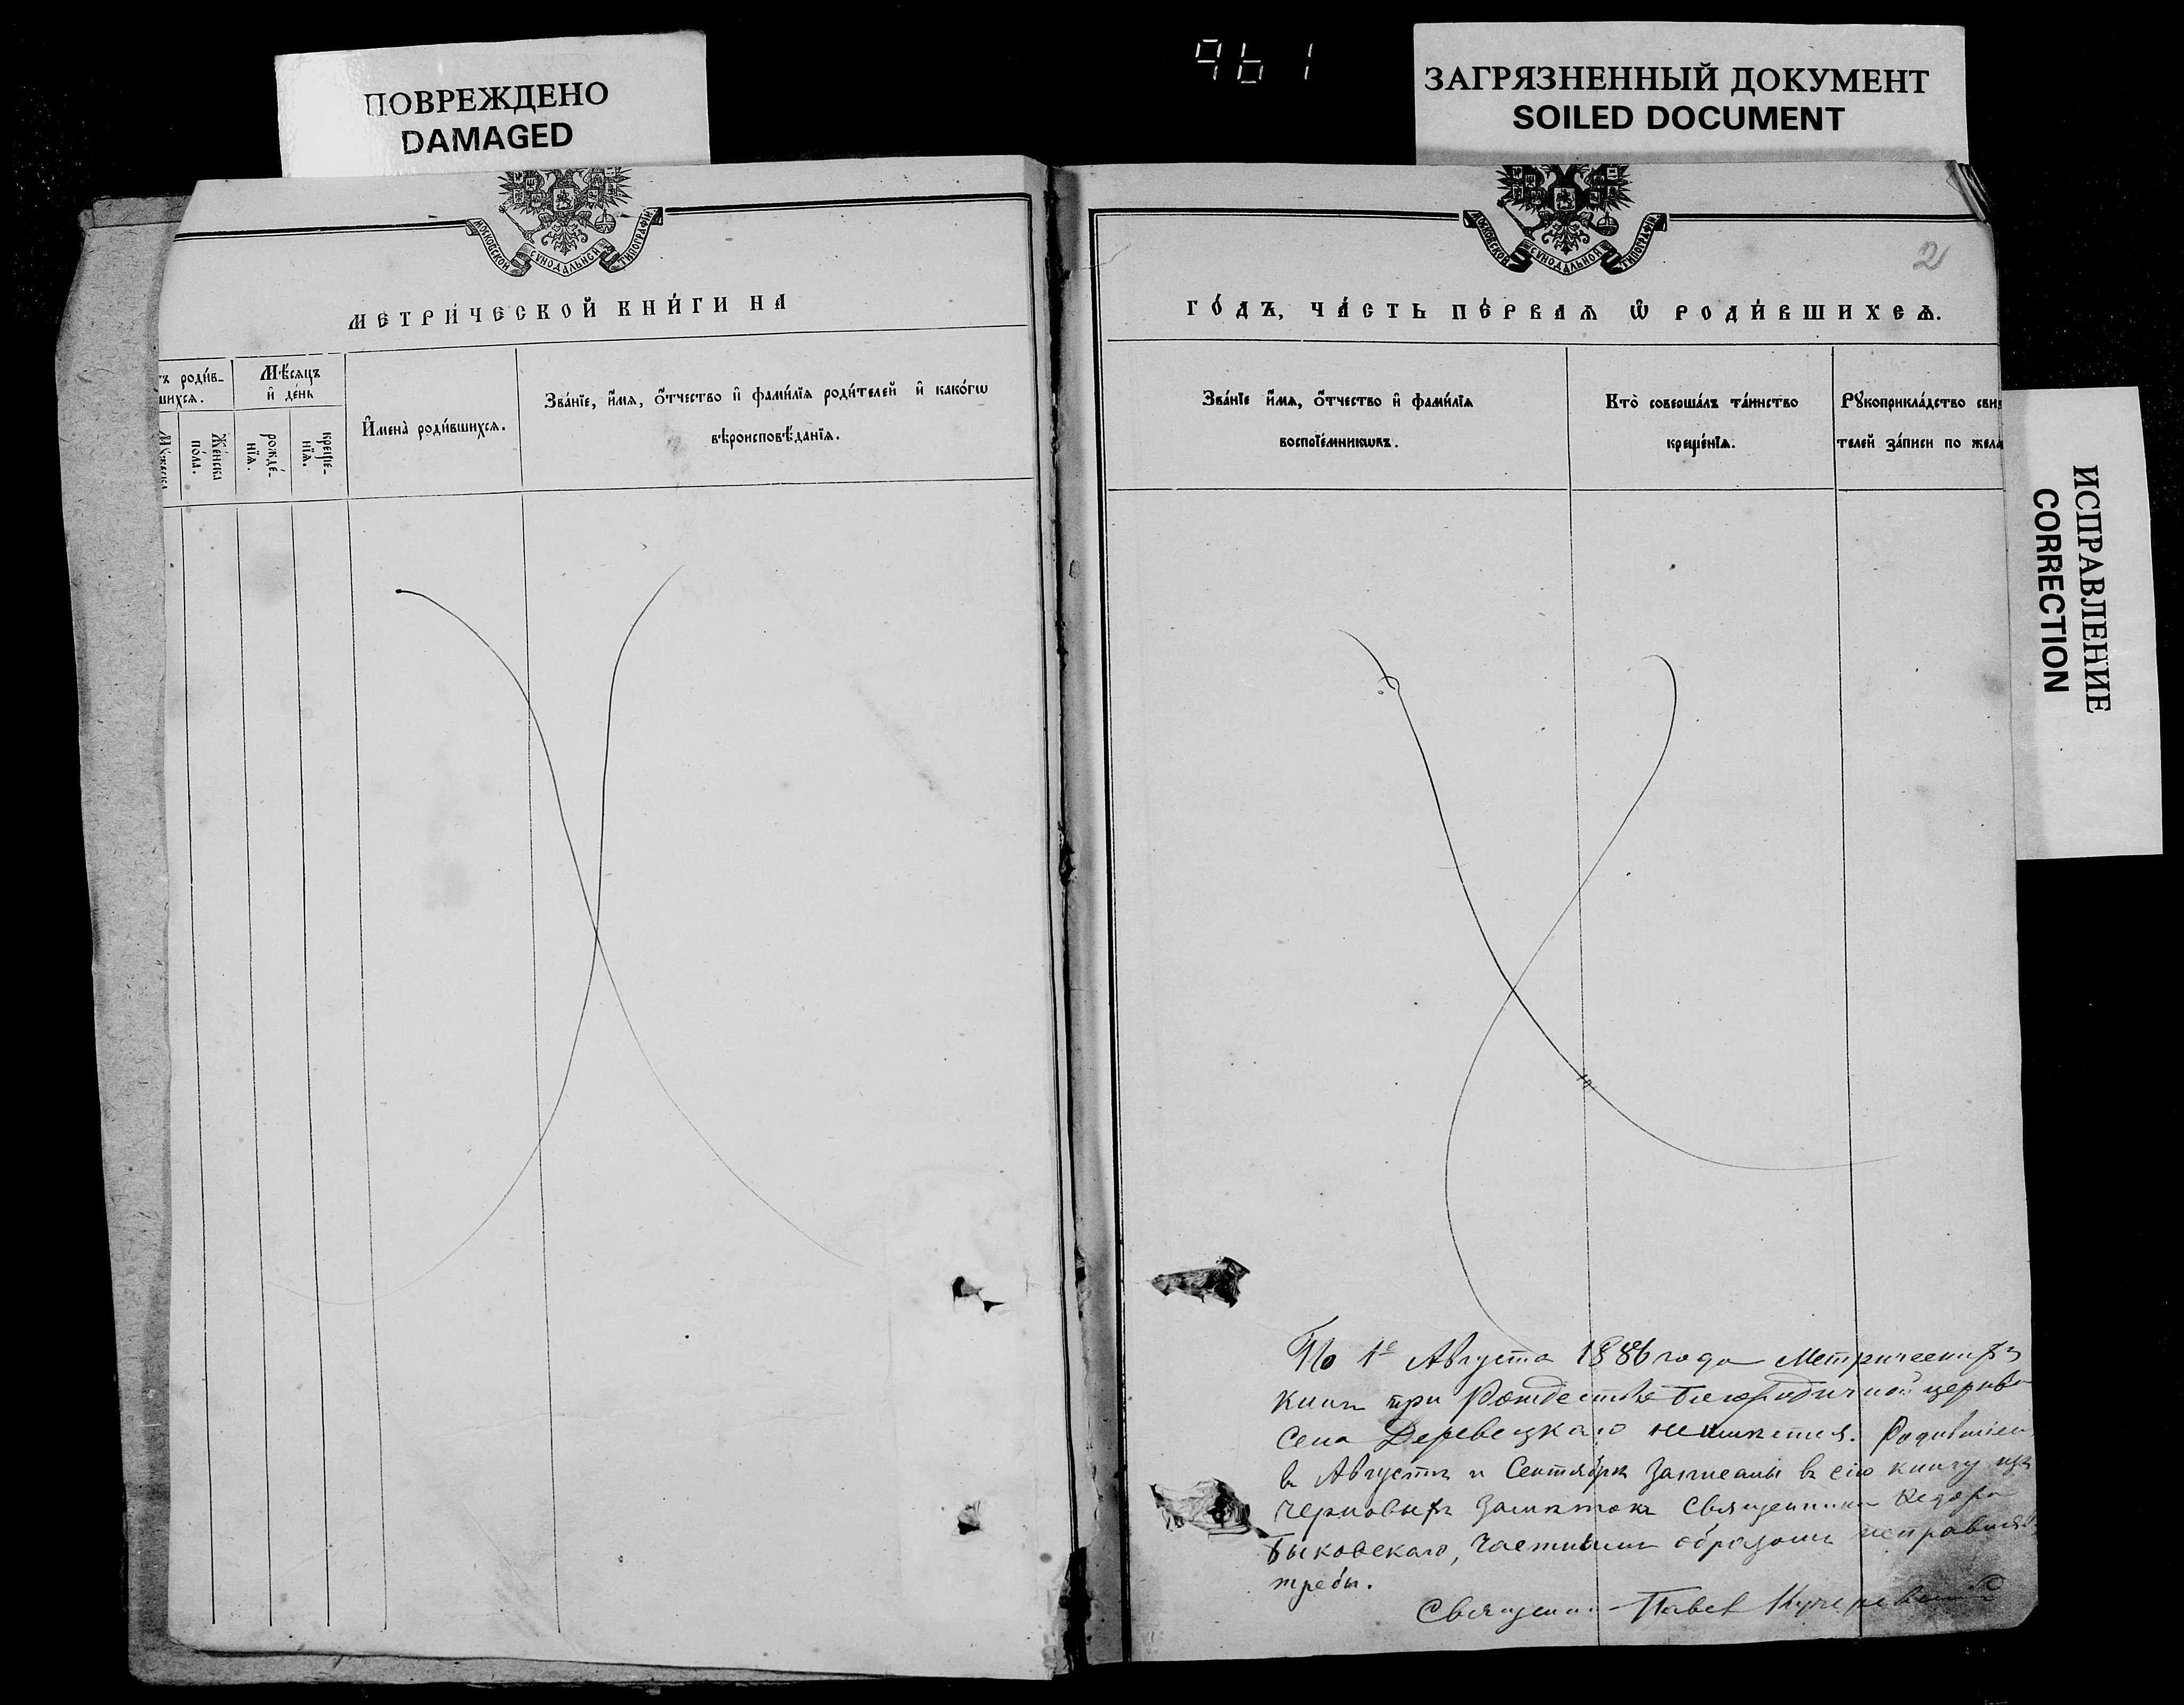 ПОВРЕЖДЕНО
DAMAGED
961
ЗАГРЯЗНЕННЫЙ ДОКУМЕНТ
SOILED DOCUMENT
МОСКОВСКОЙ СѴНОДАЛЬНОЙ ТИПОГРАФІИ
МЕТРИ́ЧЕСКОЙ КНИ́ГИ НА
роди́в-
шихся.
Мѣ́сяцъ
и҆ де́нь
Мꙋ́жеска
Же́нска
по́ла.
рожде́-
нїѧ.
креще́-
нїѧ.
И҆мена̀ роди́вшихсѧ.
Зва́нїе, и҆́мѧ, ѻ҆́тчество и҆ фами́лїѧ роди́телей и҆ како́гѡ
вѣроисповѣ́данїѧ.
МОСКОВСКОЙ СѴНОДАЛЬНОЙ ТИПОГРАФІИ
2
ГО́ДЪ, ЧА́СТЬ ПЕ́РВАѦ Ѡ҆ РОДИ́ВШИХСѦ.
Зва́нїе и҆́мѧ, ѻ҆́тчество и҆ фами́лїѧ
воспрїе́мникѡвъ.
Кто̀ соверша́лъ та́инство
креще́нїѧ.
Рꙋкоприкла́дство сви
телей за́писи по жела
ИСПРАВЛЕНИЕ
CORRECTION
По 1е Августа 1886 года Метрическихъ
книгъ при Рождество Богородичной церкви
села Деревецкаго неимѣется. Родившіеся
въ Августѣ и Сентябрѣ записаны въ сію книгу изъ
черновыхъ замѣтокъ Священника Ѳедора
Быковскаго, частнымъ образомъ исправляв
требы.
Священ. Павел